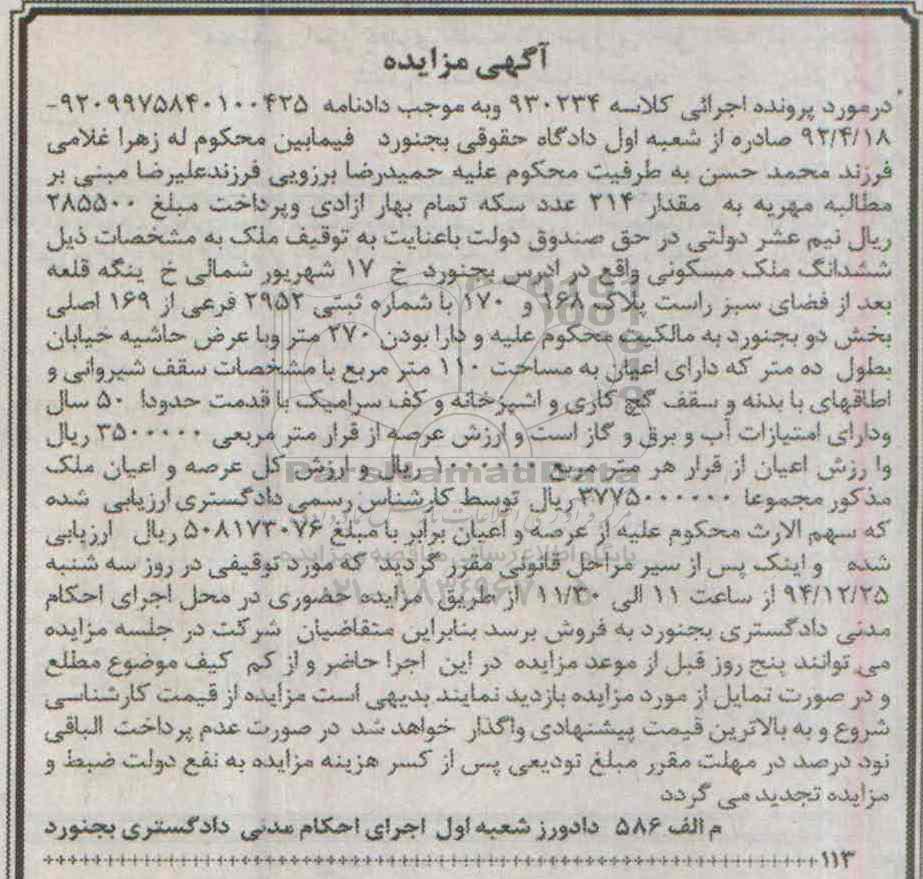 آگهی مزایده
درمورد پرونده اجرائی کلاسه ۹۳۰۲۳۴ وبه موجب دادنامه ۹۲۰۹۹۷۵۸۴۰۱۰۰۴۲۵-
۹۲/۴/۱۸ صادره از شعبه اول دادگاه حقوقی بجنورد فیمابین محکوم له زهرا غلامی
فرزند محمد حسن به طرفیت محکوم علیه حمیدرضا برزویی فرزندعلیرضا مبنی بر
مطالبه مهریه به مقدار ۲۱۴ عدد سکه تمام بهار ازادی وپرداخت مبلغ ۲۸۵۵۰۰
ریال نیم عشر دولتی در حق صندوق دولت باعنایت به توقیف ملک به مشخصات ذیل
ششدانگ ملک مسکونی واقع در ادرس بجنورد خ ۱۷ شهریور شمالی خ ینگه قلعه
بعد از فضای سبز راست پلاک ۱۶۸ و ۱۷۰ با شماره ثبتی ۲۹۵۲ فرعی از ۱۶۹ اصلی
بخش دو بجنورد به مالکیت محکوم علیه و دارا بودن ۲۷۰ متر وبا عرض حاشیه خیابان
بطول ده متر که دارای اعیان به مساحت ۱۱۰ متر مربع با مشخصات سقف شیروانی و
اطاقهای با بدنه و سقف گچ کاری و اشپزخانه و کف سرامیک با قدمت حدودا ۵۰ سال
ودارای امتیازات آب و برق و گاز است و ارزش عرصه از قرار متر مربعی ۳۵۰۰۰۰۰ ریال
وا رزش اعیان از قرار هر متر مربع ۱۰۰۰۰۰۰ ریال و ارزش کل عرصه و اعیان ملک
مذکور مجموعا ۳۷۷۵۰۰۰۰۰۰ ریال توسط کارشناس رسمی دادگستری ارزیابی شده
که سهم الارث محکوم علیه از عرصه و اعیان برابر با مبلغ ۵۰۸۱۷۳۰۷۶ ریال ارزیابی
شده و اینک پس از سیر مراحل قانونی مقرر گردید که مورد توقیفی در روز سه شنبه
۹۴/۱۲/۲۵ از ساعت ۱۱ الی ۱۱/۳۰ از طریق مزایده حضوری در محل اجرای احکام
مدنی دادگستری بجنورد به فروش برسد بنابراین متقاضیان شرکت در جلسه مزایده
می توانند پنج روز قبل از موعد مزایده در این اجرا حاضر و از کم کیف موضوع مطلع
و در صورت تمایل از مورد مزایده بازدید نمایند بدیهی است مزایده از قیمت کارشناسی
شروع و به بالاترین قیمت پیشنهادی واگذار خواهد شد در صورت عدم پرداخت الباقی
نود درصد در مهلت مقرر مبلغ تودیعی پس از کسر هزینه مزایده به نفع دولت ضبط و
مزایده تجدید می گردد
م الف ۵۸۶ دادورز شعبه اول اجرای احکام مدنی دادگستری بجنورد
۱۱۳
ParsNamadData